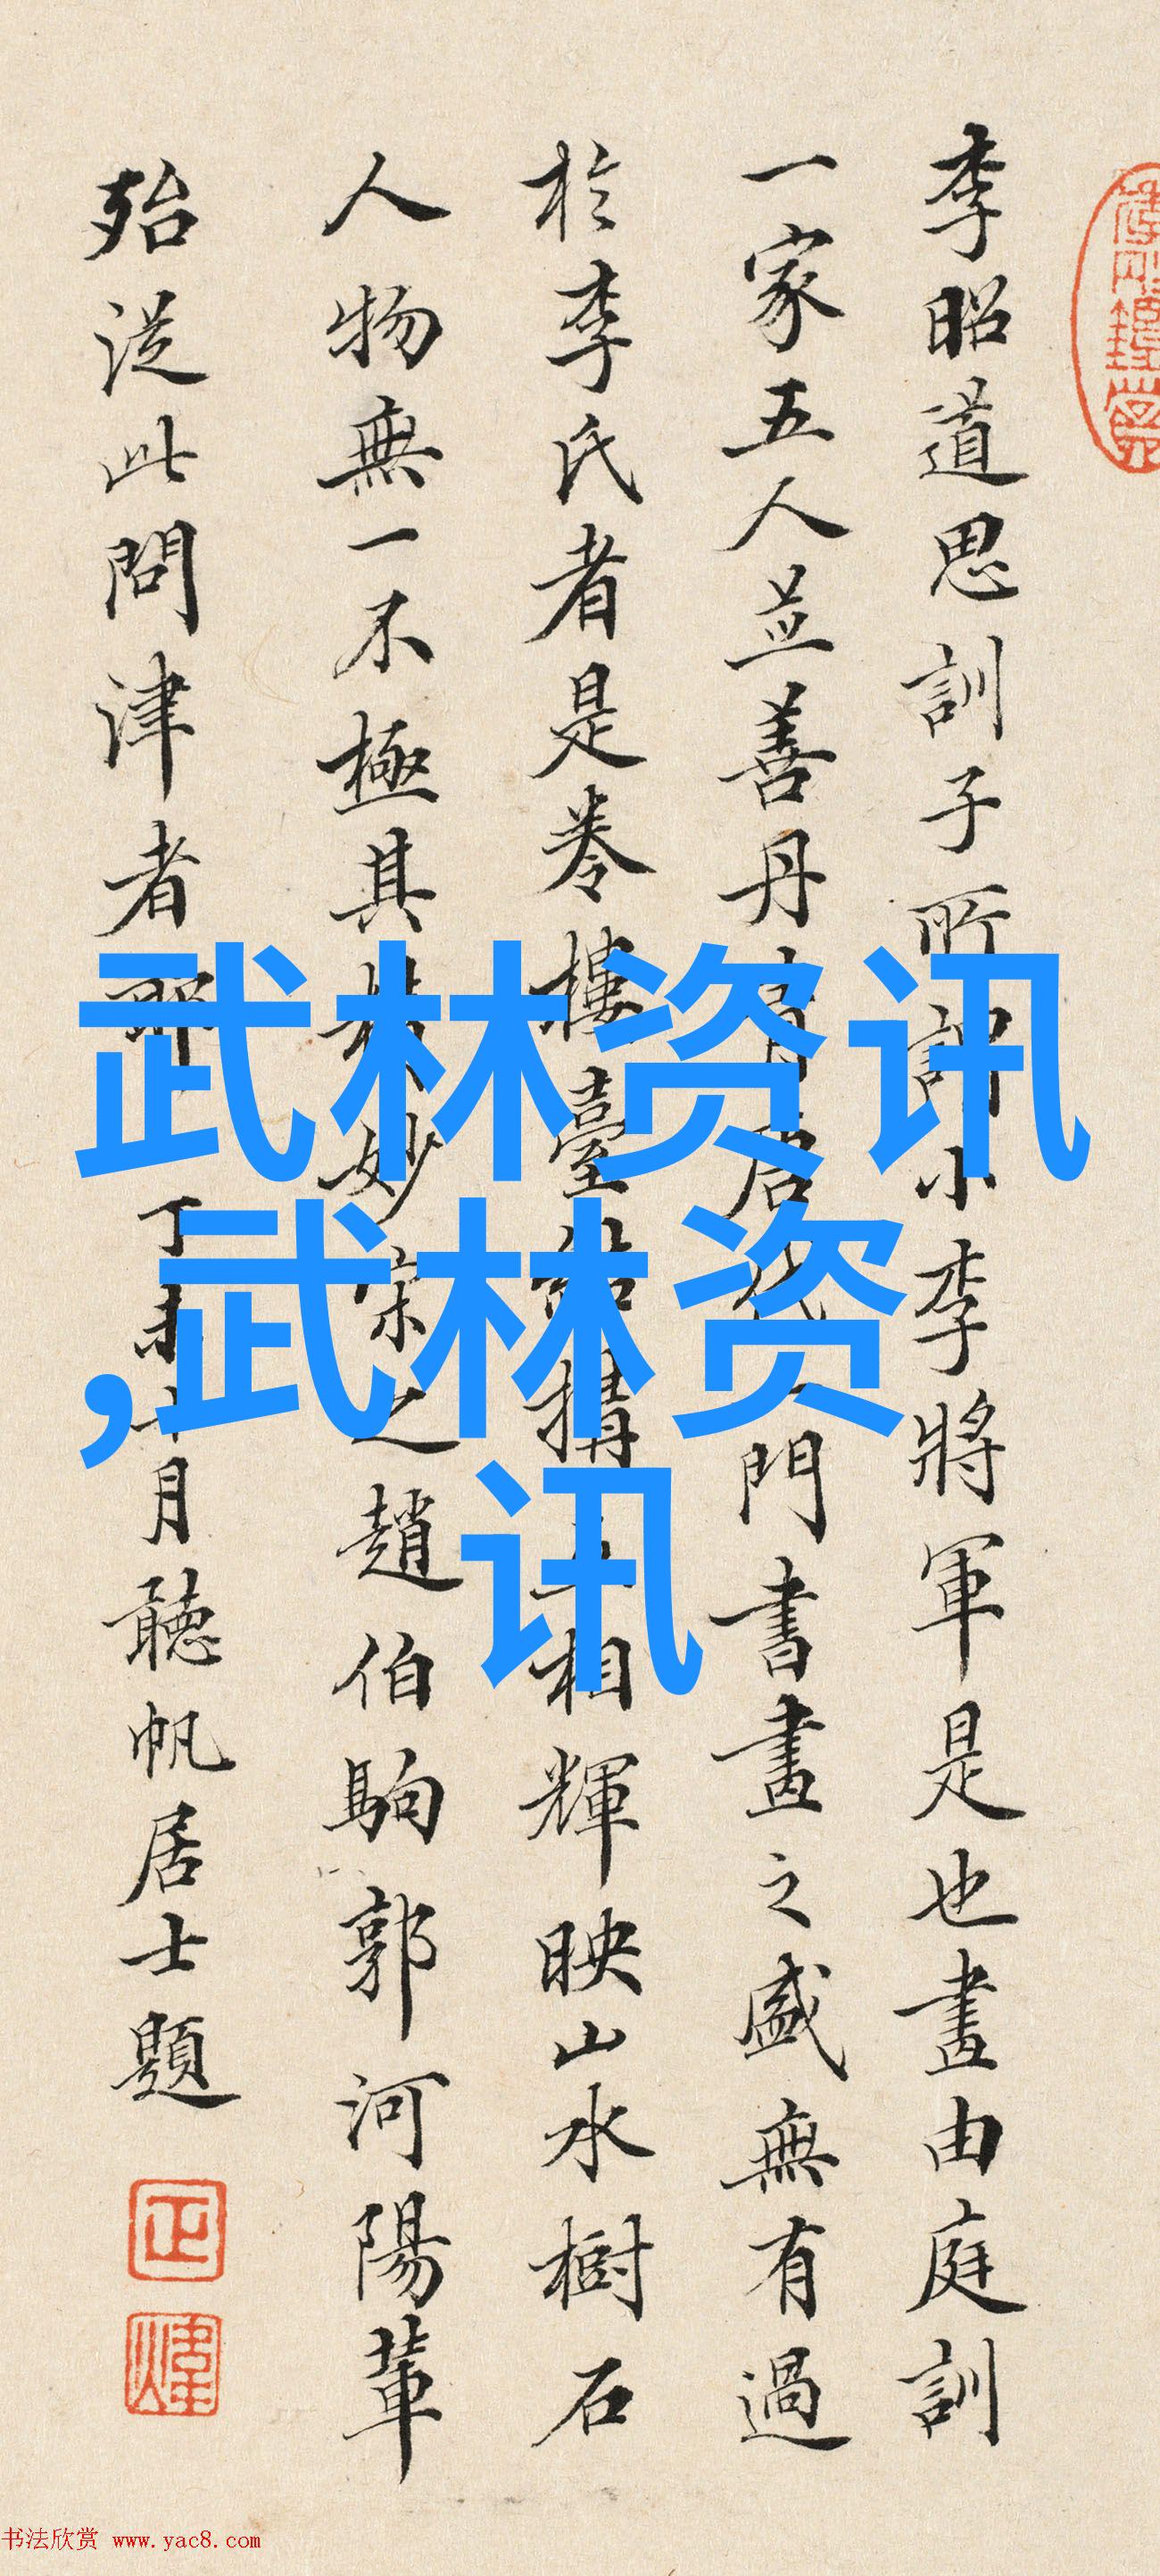 李昭道思訓子所謂小李將軍是也畫由庭訓
一家五人並善丹青唐代一門書畫之盛無有過
於李氏者是卷樓臺結構互相輝映山水樹石
人物無一不極其精妙宋之趙伯駒郭河陽輩
殆從此問津者耶 丁未十月聽帆居士題
正
煒
武林资讯
,武林资
讯
书法欣赏 www.yac8.com